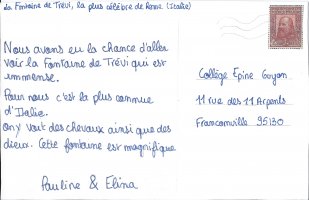 La Fontaine de Trévi, la plus célèbre de Rome (Italie)
Nous avons eu la chance d'aller
voir la Fontaine de Trévi qui est
immense.
Pour nous c'est la plus connue
d'Italie.
On y voit des chevaux ainsi que des
dieux. Cette fontaine est magnifique.
Pauline & Elina
Collège Epine Guyon
11 rue des 11 Arpents
Franconville 95130